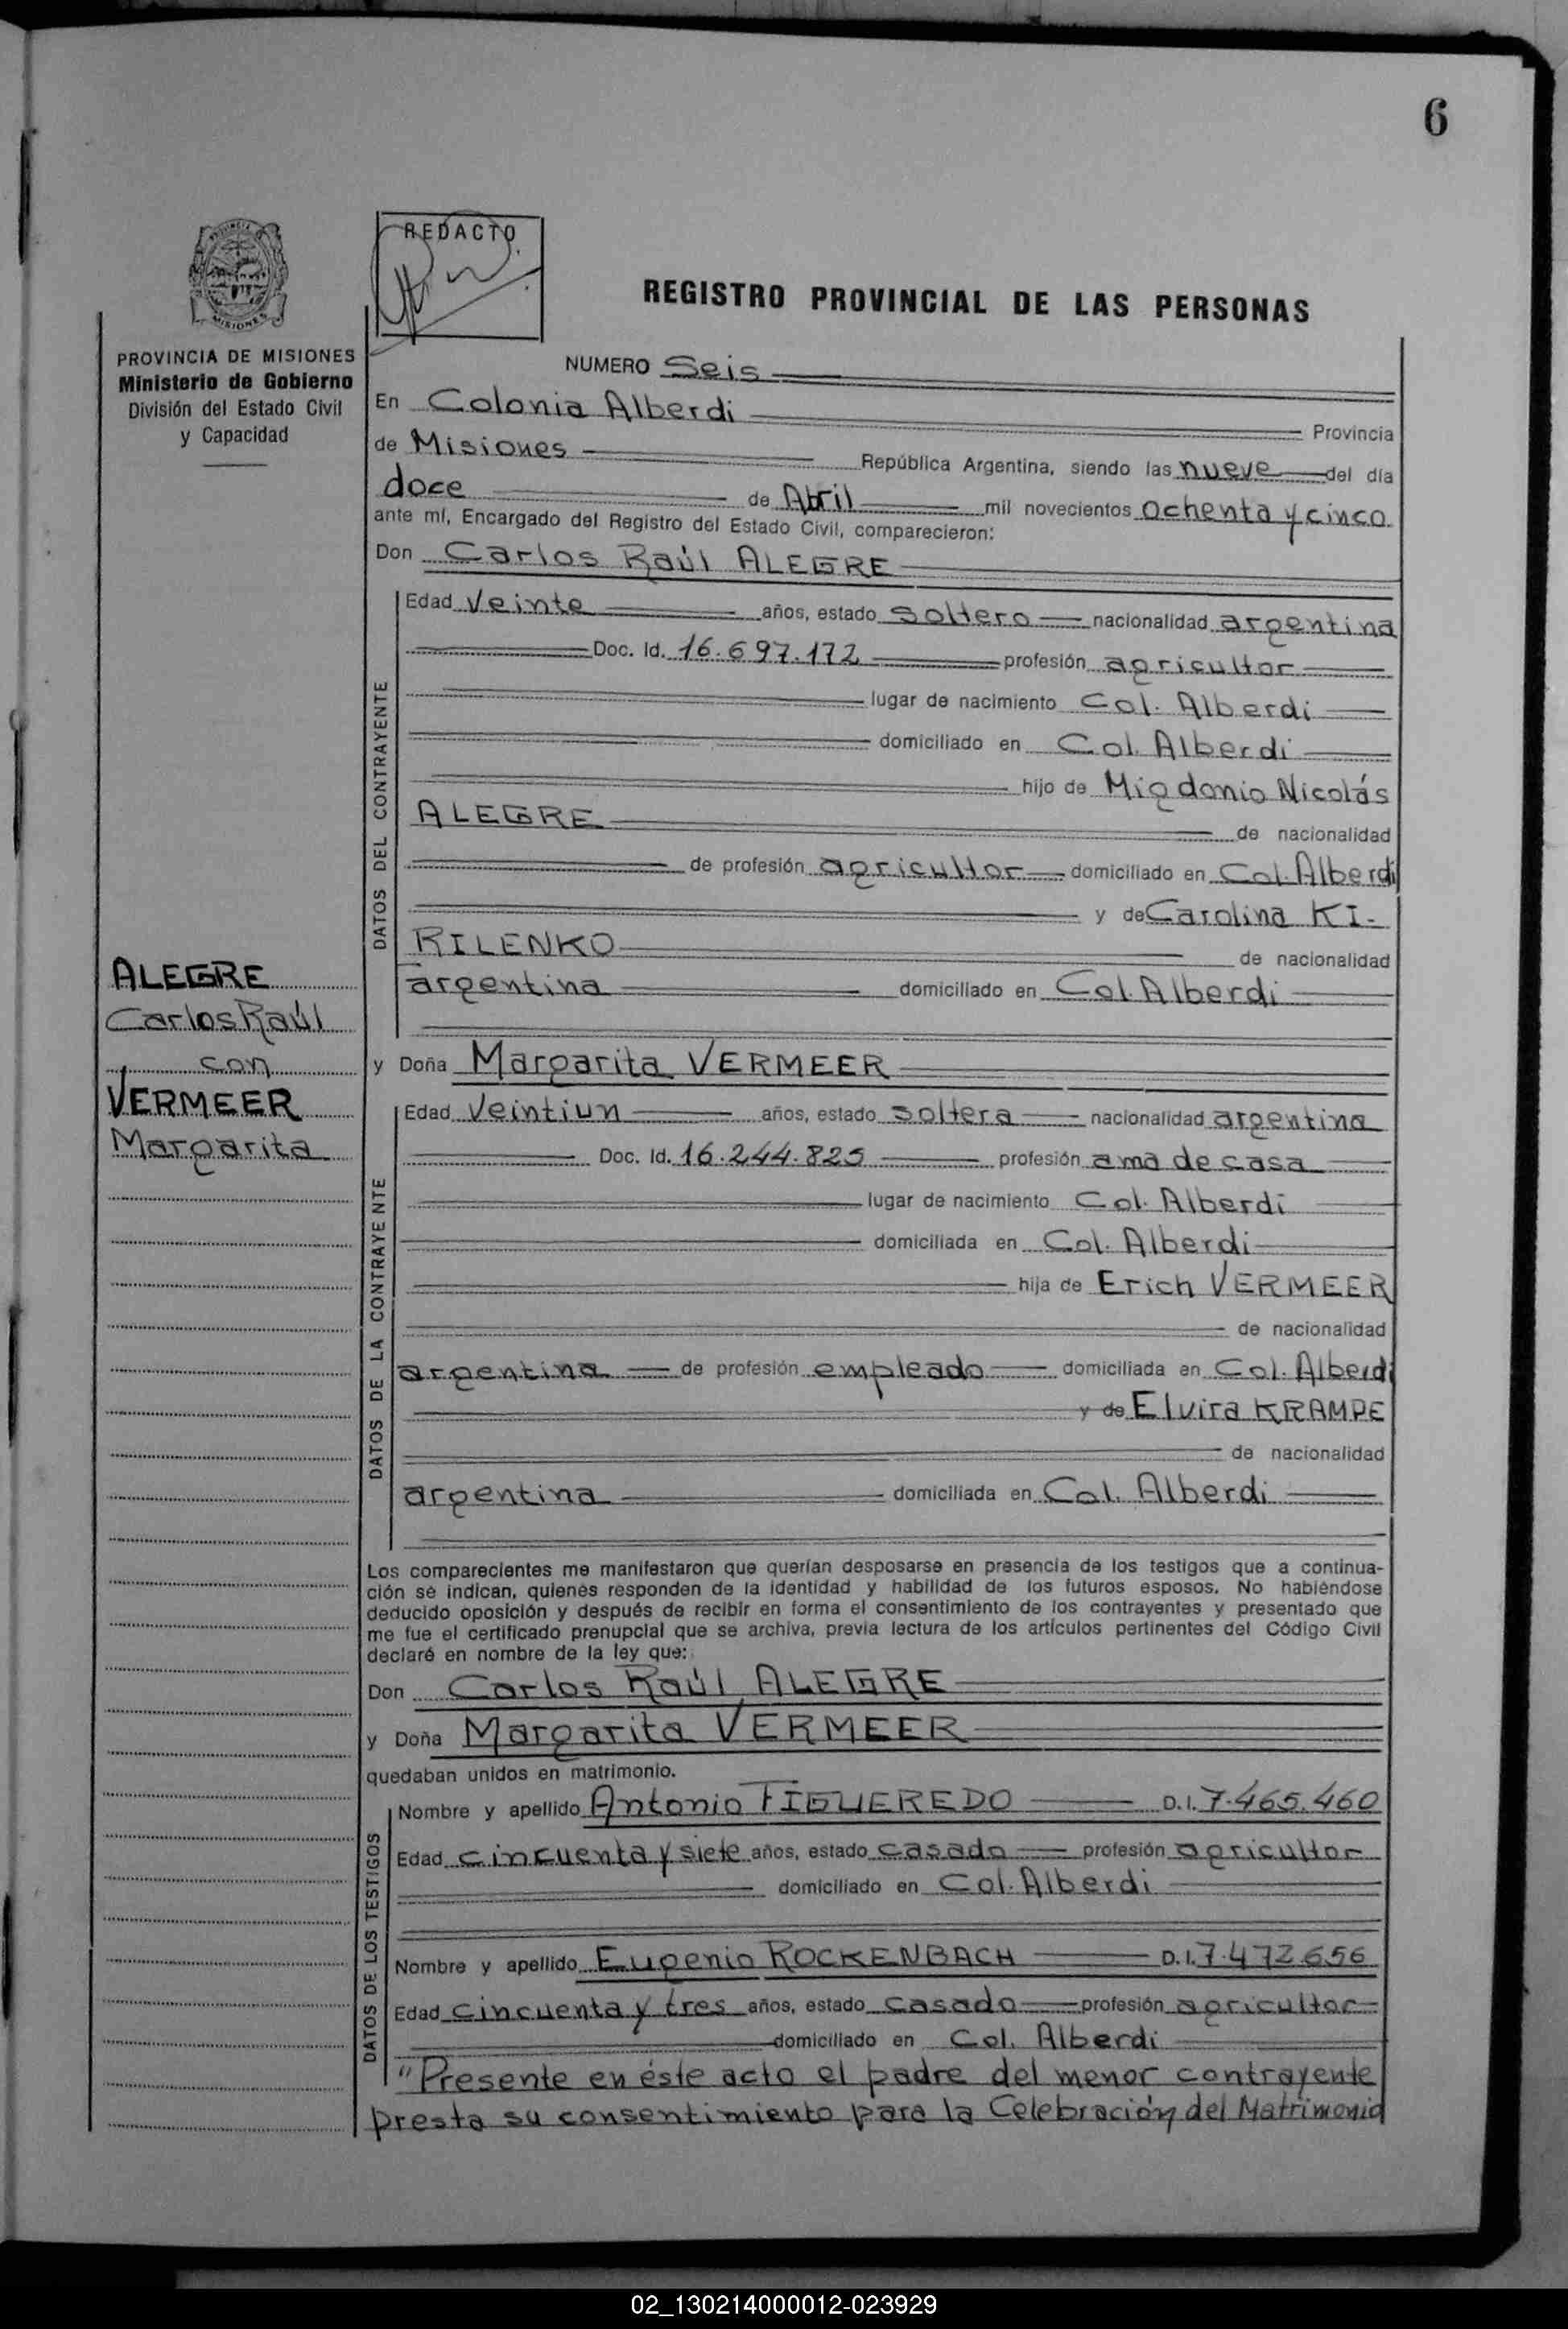 6
REDACTO
REGISTRO PROVINCIAL DE LAS PERSONAS
MISIONES
PROVINCIA DE MISIONES
Ministerio de Gobierno
División del Estado Civil
y Capacidad
NUMERO Seis
En Colonia Alberdi Provincia
de Misiones República Argentina, siendo las nueve del día
doce de Abril mil novecientos ochenta y cinco
ante mí, Encargado del Registro del Estado Civil, comparecieron:
Don Carlos Raúl ALEGRE
DATOS DEL CONTRAYENTE
Edad Veinte años, estado soltero nacionalidad argentina
Doc. Id. 16.697.172 profesión agricultor
lugar de nacimiento Col. Alberdi
domiciliado en Col. Alberdi
hijo de Migdonio Nicolás
ALEGRE de nacionalidad
de profesión agricultor domiciliado en Col. Alberdi
y de Carolina KI-
RILENKO de nacionalidad
argentina domiciliado en Col. Alberdi
ALEGRE
Carlos Raúl
con
VERMEER
Margarita
y Doña Margarita VERMEER
DATOS DE LA CONTRAYENTE
Edad Veintiun años, estado soltera nacionalidad argentina
Doc. Id. 16.244.825 profesión ama de casa
lugar de nacimiento Col. Alberdi
domiciliada en Col. Alberdi
hija de Erich VERMEER
de nacionalidad
argentina de profesión empleado domiciliada en Col. Alberdi
y de Elvira KRAMPE
de nacionalidad
argentina domiciliada en Col. Alberdi
Los comparecientes me manifestaron que querían desposarse en presencia de los testigos que a continua-
ción se indican, quienes responden de la identidad y habilidad de los futuros esposos. No habiéndose
deducido oposición y después de recibir en forma el consentimiento de los contrayentes y presentado que
me fue el certificado prenupcial que se archiva, previa lectura de los artículos pertinentes del Código Civil
declaré en nombre de la ley que:
Don Carlos Raúl ALEGRE
y Doña Margarita VERMEER
quedaban unidos en matrimonio.
DATOS DE LOS TESTIGOS
Nombre y apellido Antonio FIGUEREDO D.I. 7.465.460
Edad cincuenta y siete años, estado casado profesión agricultor
domiciliado en Col. Alberdi
Nombre y apellido Eugenio ROCKENBACH D.I. 7.472.656
Edad cincuenta y tres años, estado casado profesión agricultor
domiciliado en Col. Alberdi
"Presente en éste acto el padre del menor contrayente
presta su consentimiento para la Celebración del Matrimonio
02_130214000012-023929